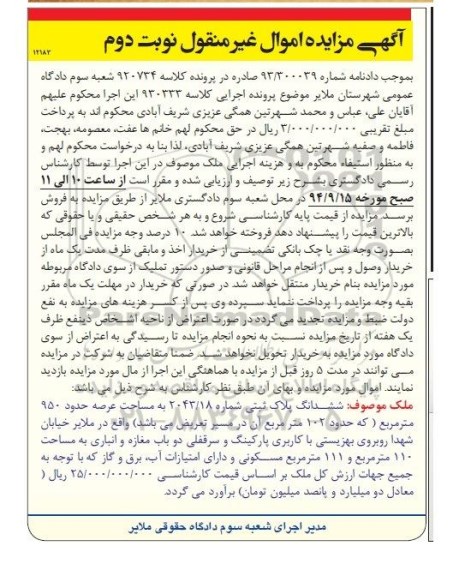 آگهی مزایده اموال غیر منقول نوبت دوم
۱۲۱۸۳
بموجب دادنامه شماره ۹۳/۳۰۰۰۳۹ صادره در پرونده کلاسه ۹۲۰۷۳۴ شعبه سوم دادگاه
عمومی شهرستان ملایر موضوع پرونده اجرایی کلاسه ۹۳۰۳۳۳ این اجرا محکوم علیهم
آقایان علی، عباس و محمد شهرتین همگی عزیزی شریف آبادی محکوم اند به پرداخت
مبلغ تقریبی ۳/۰۰۰/۰۰۰/۰۰۰ ریال در حق محکوم لهم خانم ها عفت، معصومه، بهجت،
فاطمه و صفیه شهرتین همگی عزیزی شریف آبادی، لذا بنا به درخواست محکوم لهم و
به منظور استیفاء محکوم به و هزینه اجرایی ملک موصوف در این اجرا توسط کارشناس
رسمی دادگستری بشرح زیر توصیف و ارزیابی شده و مقرر است از ساعت ۱۰ الی ۱۱
صبح مورخه ۹۴/۹/۱۵ در محل شعبه سوم دادگستری ملایر از طریق مزایده به فروش
برسد مزایده از قیمت پایه کارشناسی شروع و به هر شخص حقیقی و یا حقوقی که
بالاترین قیمت را پیشنهاد دهد فروخته خواهد شد. ۱۰ درصد وجه مزایده فی المجلس
بصورت وجه نقد یا چک بانکی تضمینی از خریدار اخذ و مابقی ظرف مدت یک ماه از
خریدار وصول و پس از انجام مراحل قانونی و صدور دستور تملیک از سوی دادگاه مربوطه
مورد مزایده بنام خریدار منتقل خواهد شد. در صورتی که خریدار در مهلت یک ماه مقرر
بقیه وجه مزایده را پرداخت ننماید سپرده وی پس از کسر هزینه های مزایده به نفع
دولت ضبط و مزایده تجدید می گردد در صورت اعتراض از ناحیه اشخاص ذینفع ظرف
یک هفته از تاریخ مزایده نسبت به نحوه انجام مزایده تا رسیدگی به اعتراض از سوی
دادگاه مورد مزایده به خریدار تحویل نخواهد شد. ضمنا متقاضیان به شرکت در مزایده
می توانند در مدت ۵ روز قبل از مزایده با هماهنگی این اجرا از مال مورد مزایده بازدید
نمایند. اموال مورد مزایده و بهای آن طبق نظر کارشناس به شرح ذیل می باشد:
ملک موصوف: ششدانگ پلاک ثبتی شماره ۲۰۴۳/۱۸ به مساحت عرصه حدود ۹۵۰
مترمربع ( که حدود ۱۰۲ متر مربع آن در مسیر تعریض می باشد) واقع در ملایر خیابان
شهدا روبروی بهزیستی با کاربری پارکینگ و سرقفلی دو باب مغازه و انباری به مساحت
۱۱۰ مترمربع و ۱۱۱ مترمربع مسکونی و دارای امتیازات آب، برق و گاز که با توجه به
جمیع جهات ارزش کل ملک بر اساس قیمت کارشناسی ۲۵/۰۰۰/۰۰۰/۰۰۰ ریال (
معادل دو میلیارد و پانصد میلیون تومان) برآورد می گردد.
مدیر اجرای شعبه سوم دادگاه حقوقی ملایر